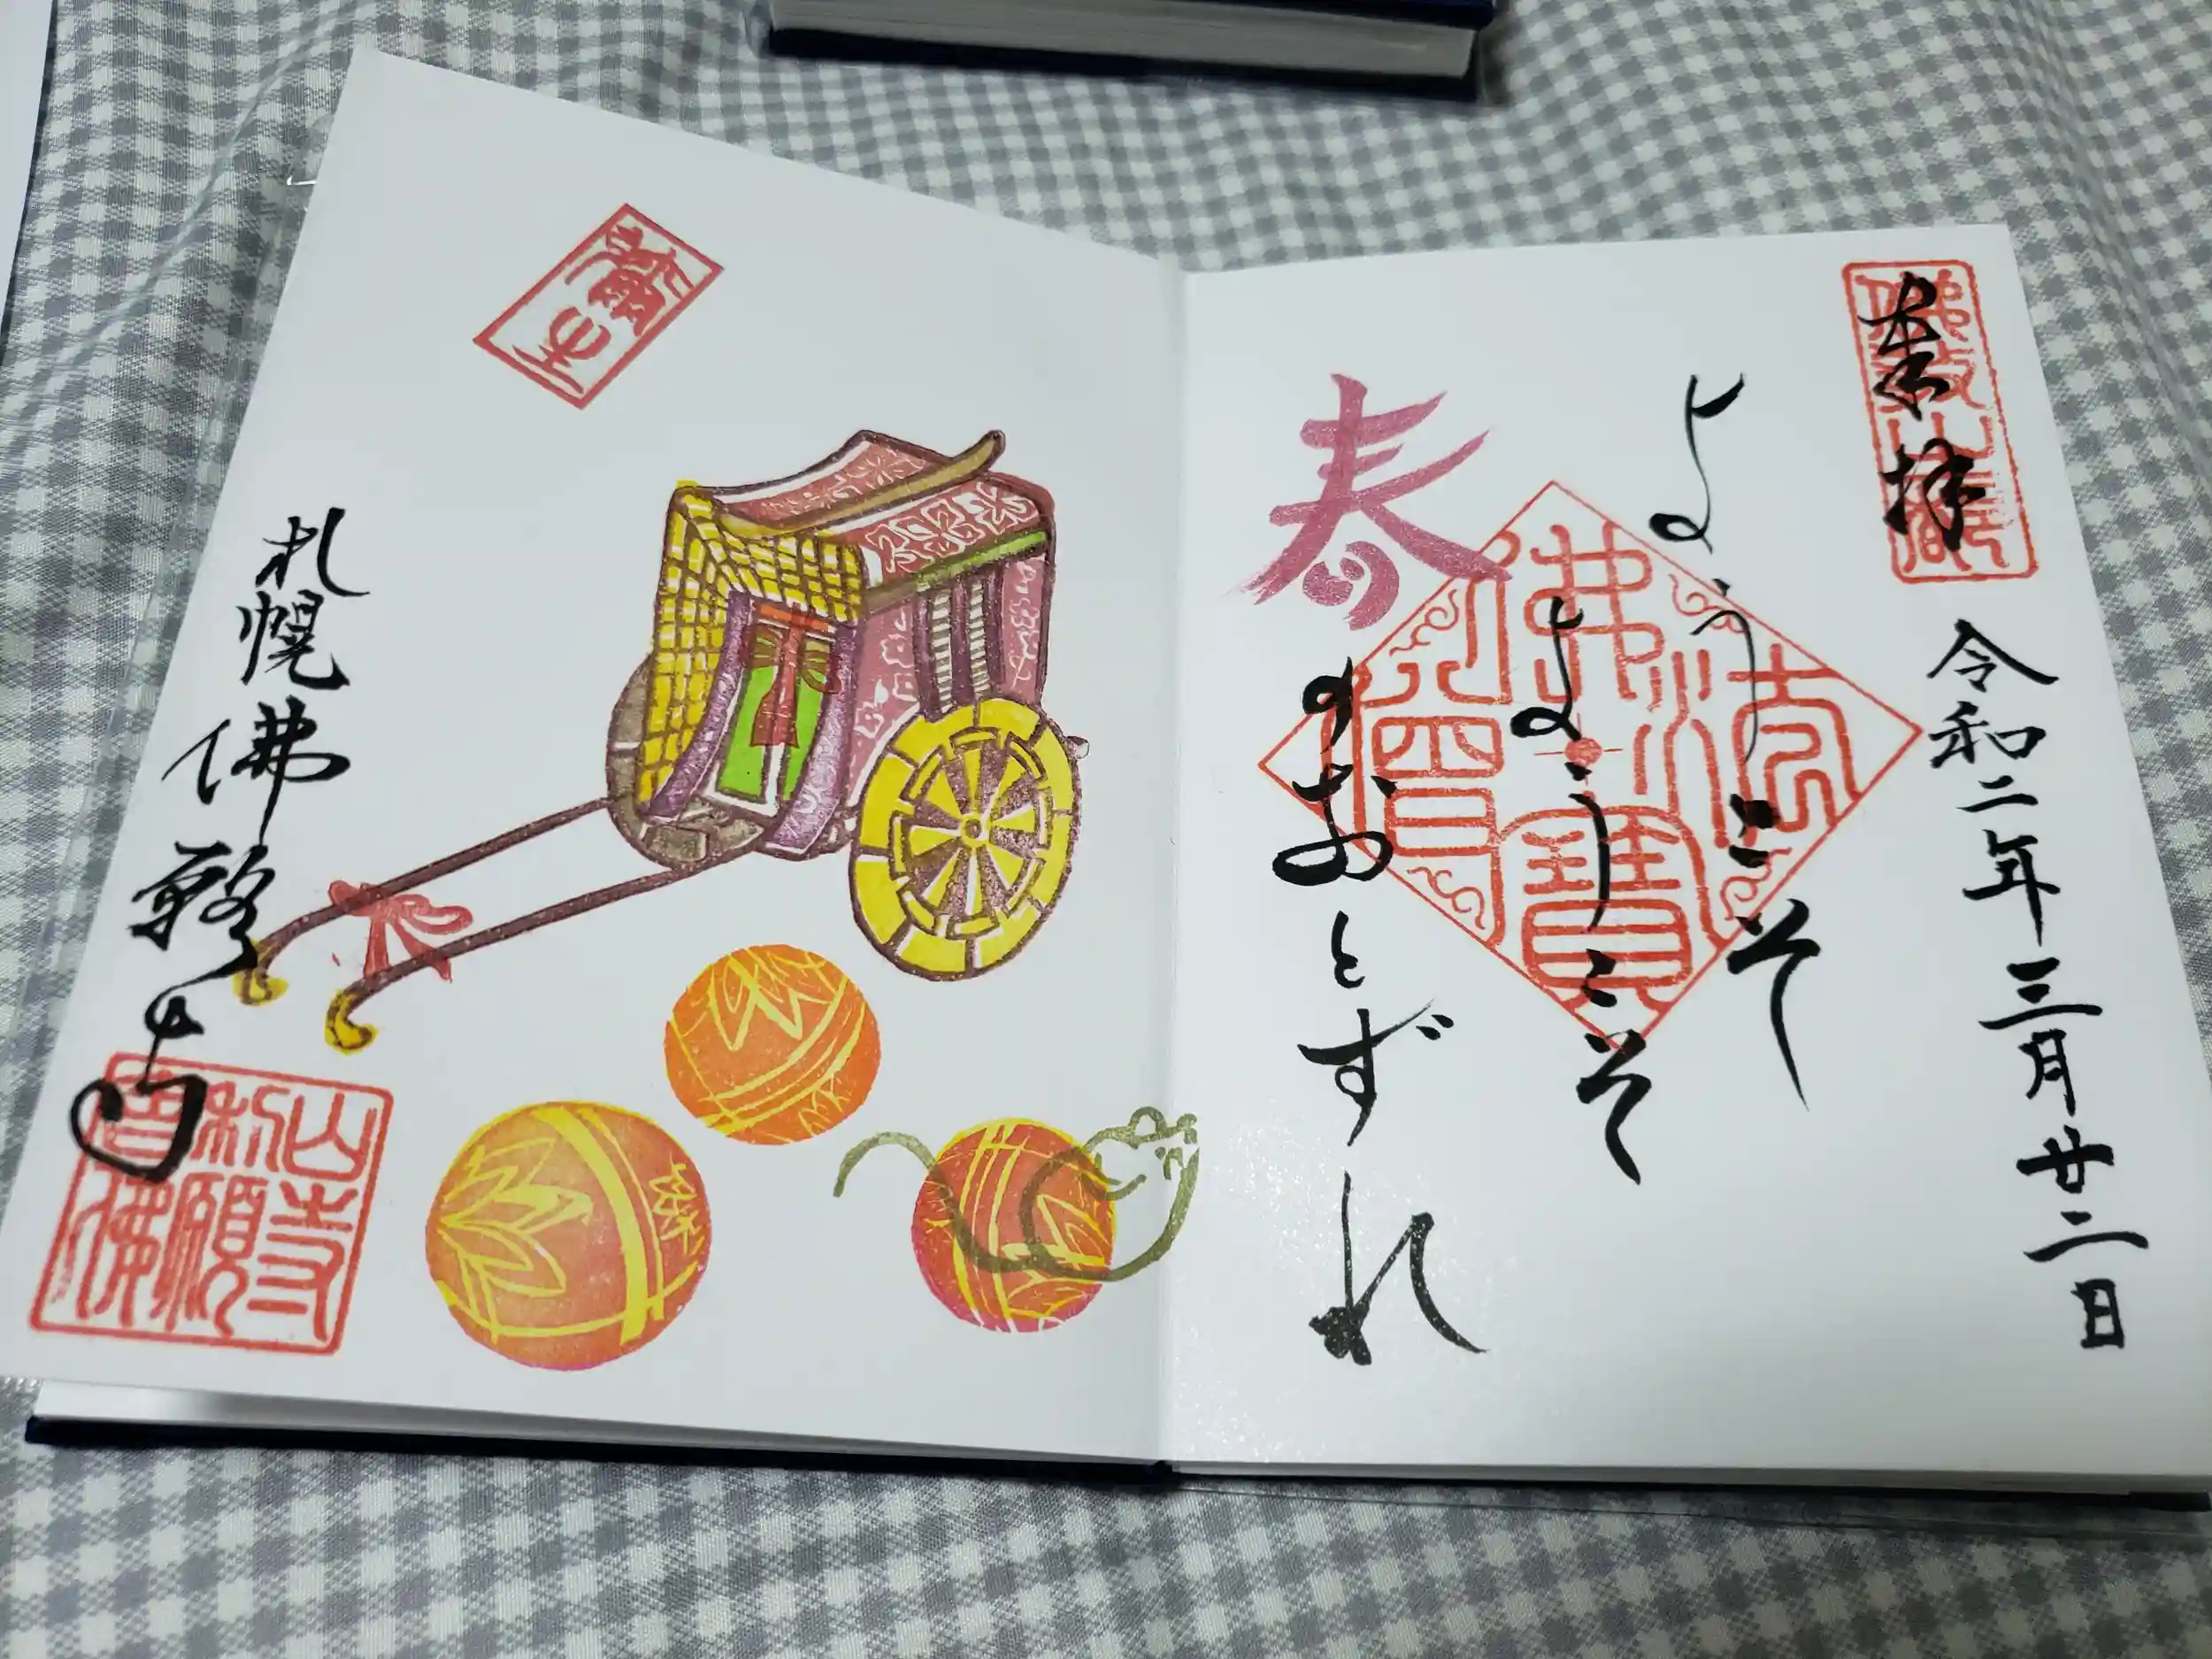 奉拝
令和二年三月廿二日
ようこそ
ようこそ
春
のおとずれ
佛法僧寶
札幌佛願寺